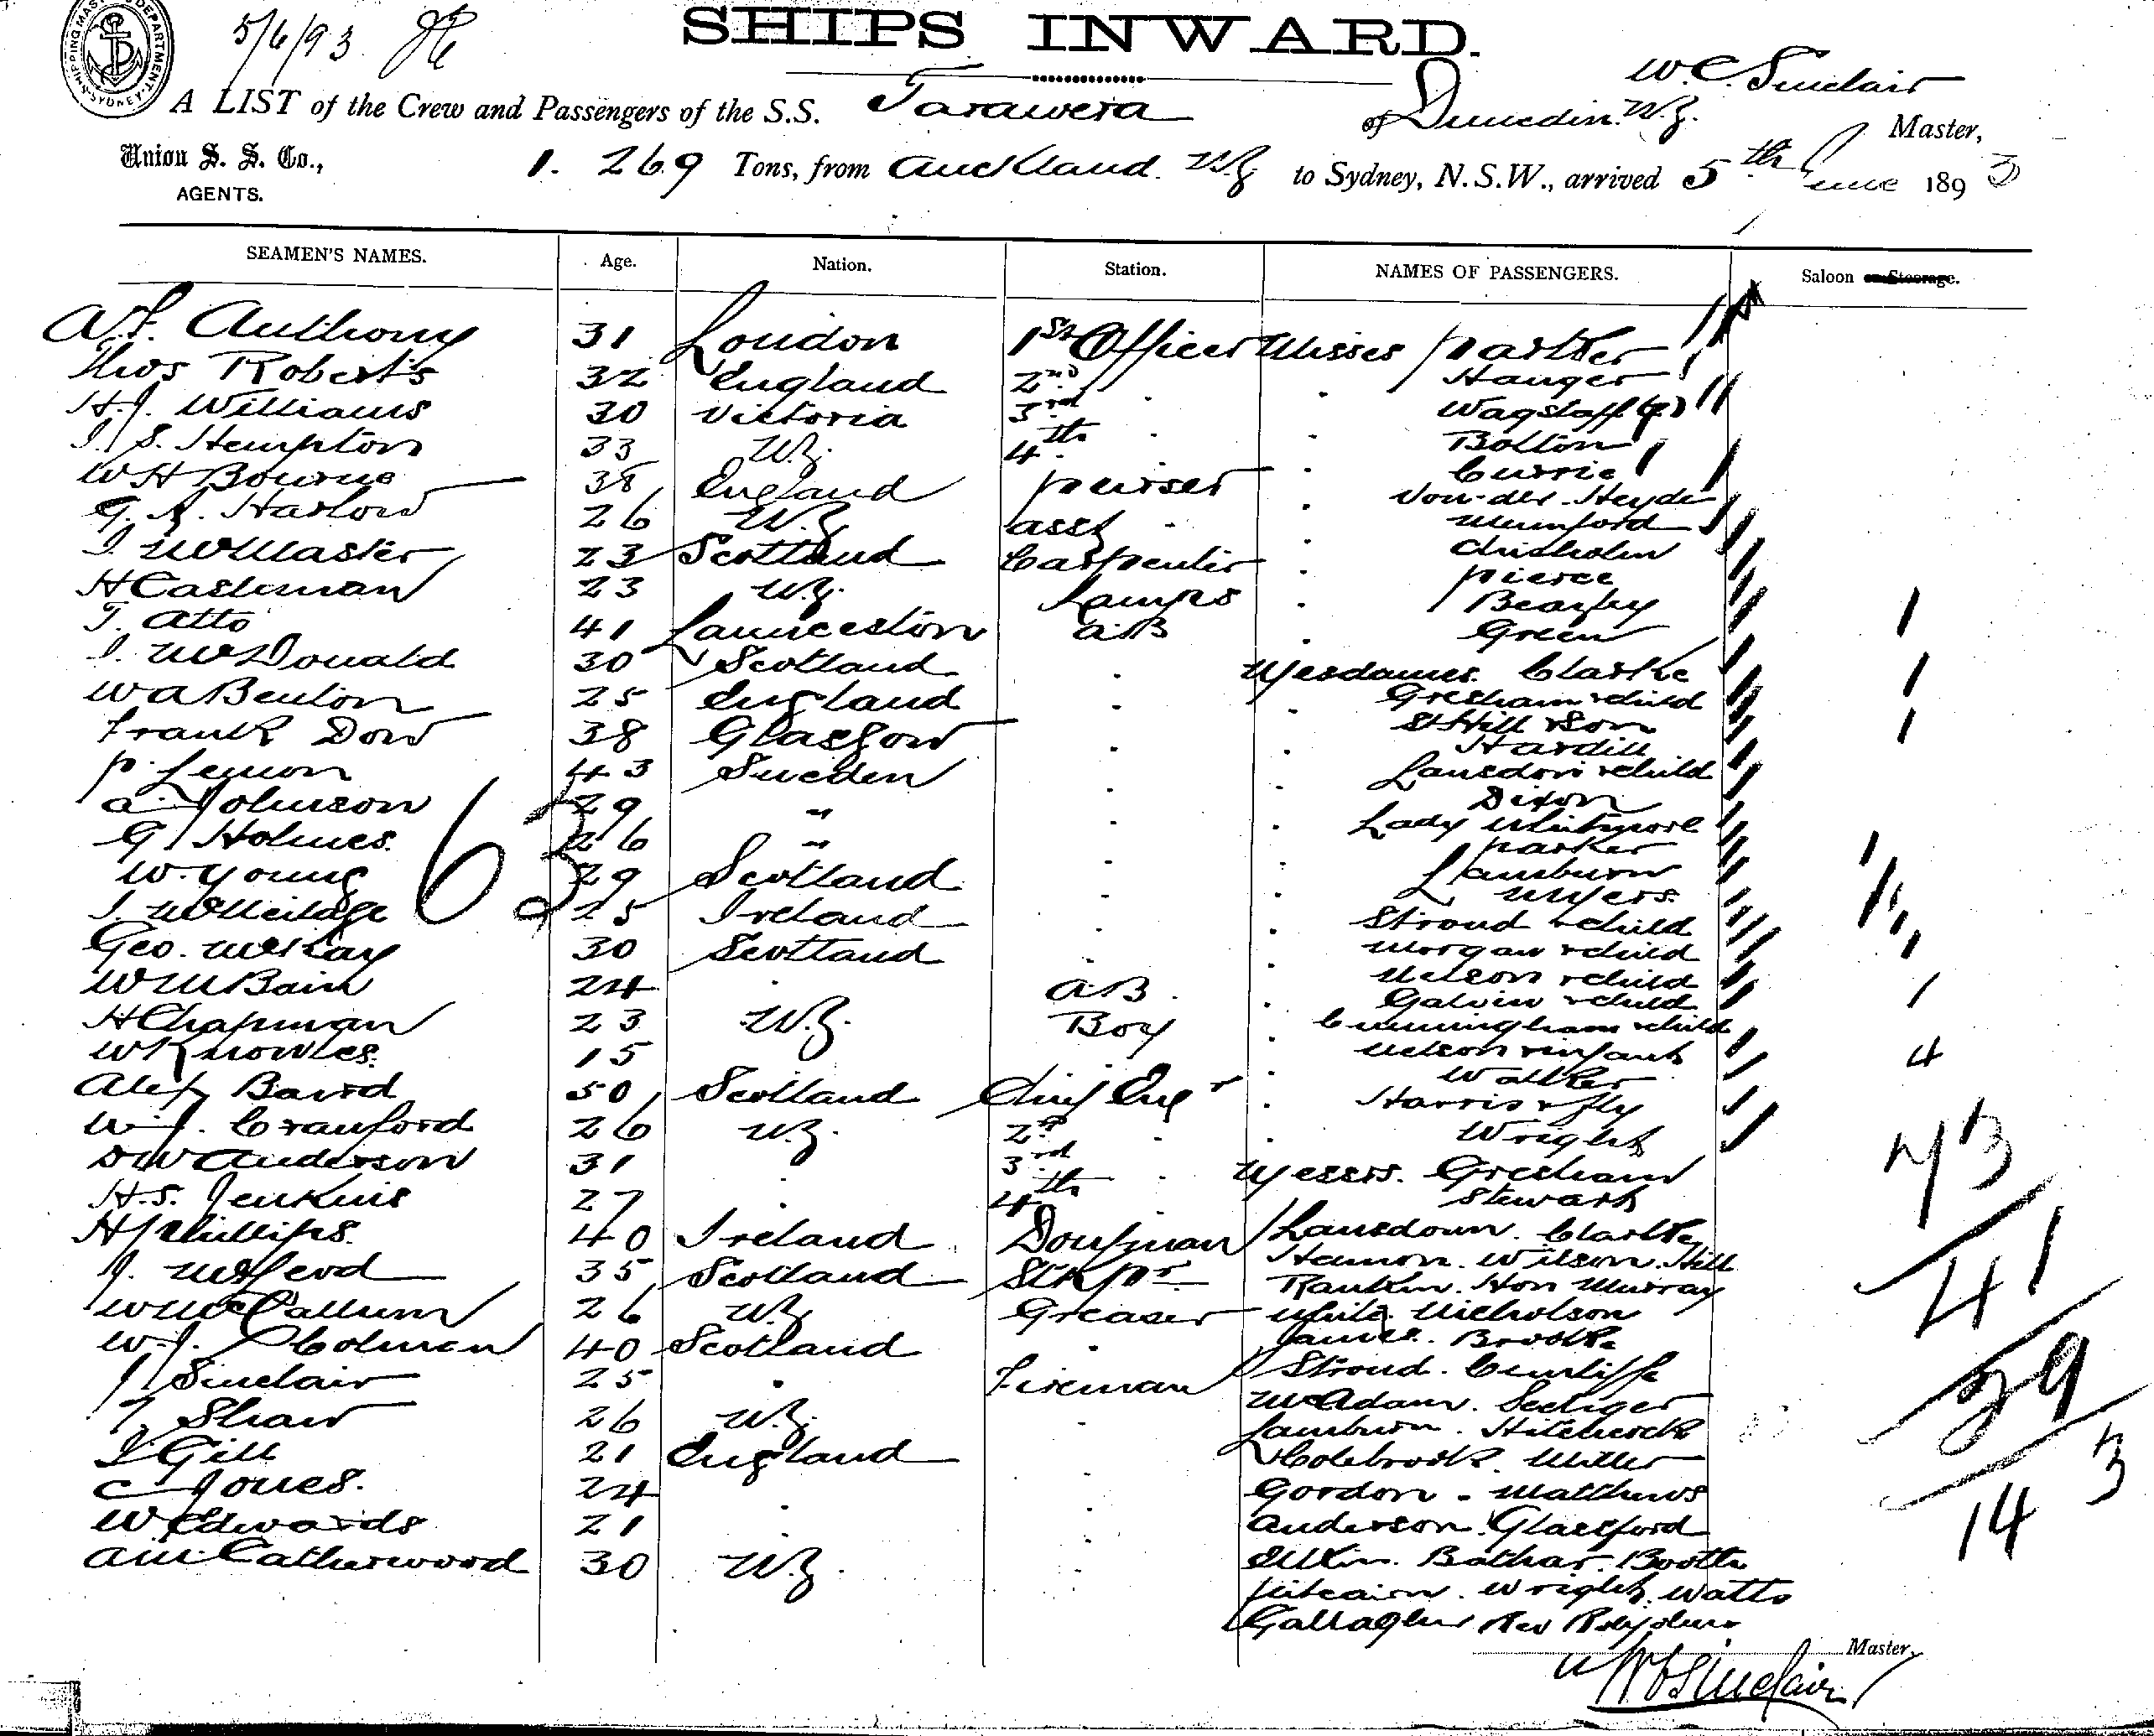 SHIPPING MASTER'S DEPARTMENT SYDNEY
5/6/93
SHIPS INWARD.
W. C. Sinclair
A LIST of the Crew and Passengers of the S.S. Tarawera of Dunedin N.Z. Master,
Union S. S. Co., 1.269 Tons, from Auckland. N.Z to Sydney, N.S.W., arrived 5th June 1893
AGENTS.
SEAMEN'S NAMES. Age. Nation. Station. NAMES OF PASSENGERS. Saloon or Steerage.
A.F. Anthony 31 London 1st Officer Misses Parker
Thos Roberts 32 England 2nd Hanger
H.J. Williams 30 Victoria 3rd Wagstaff (2)
J. S. Hempton 33 N.Z. 4th Bolton
W H Bourne 38 England purser Currie
G. A. Harlow 26 N.Z. asst Von-der-Heyde
Mumford
J. McMaster 23 Scotland Carpenter Chisholm
H Casleman 23 N.Z. Lamps Pierce
Bearfey
T. Atto 41 Launceston A.B Green
J. McDonald 30 Scotland Mesdames Clarke
W A Benton 25 England Gresham & child
Frank Dow 38 Glasgow St Hill & Son
Hardill
P. Lemon 43 Sweden Lansdown & child
A. Johnson 29 " Dixon
G Holmes 26 " Lady Whitmore
Parker
W. Young 29 Scotland Lamburn
J. McMeitage 25 Ireland Myers
Stroud & child
Geo. McKay 30 Scotland Morgan & child
W McBain 24 A.B. Nelson & child
Galvin & child
H Chapman 23 N.Z. Boy Cunningham & child
W Knowles. 15 Nelson & infant 4
Walker
Alex Baird 50 Scotland Chief Engr Harris & fly
W. J. Cranford 26 N.Z. 2nd Wright 73
D W Anderson 31 3rd Messrs. Gresham
H.S. Jenkins 27 4th Stewart
H Phillips. 40 Ireland Donkman Lansdown. Clarke 41
J. McLeod 35 Scotland Stkpr Hannon. Wilson. Hill
Rankin. Hon Murray
W McCallum 26 N.Z. Greaser White Nicholson
W. J. Colman 40 Scotland James. Brooke
J Sinclair 25 Fireman Stroud. Cunliffe 29
T Shaw 26 N.Z. McAdam. Seeliger
J Gill 21 England Lamburn. Hitchcock
Holebrook. Miller
C Jones. 24 Gordon. Matthews 3
W Edwards 21 Anderson Glassford 14
A M Catherwood 30 N.Z. Bathar. Booth
Pitcairn. Wright. Watts
Gallagher Rev
63
Master,
W C Sinclair